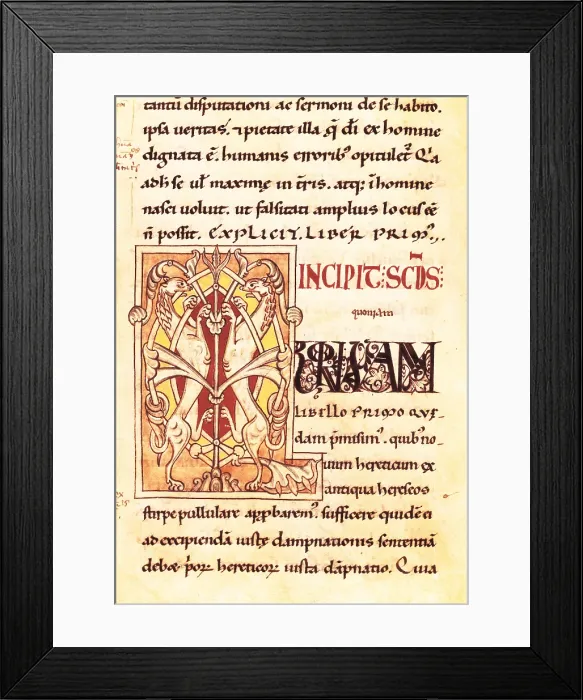 tantū disputationi ac sermoni de se habito.
ipsa ueritas. ⁊ pietate illa q̄ dī ex homine
dignata ē. humanis erroribꝰ opitulet᷑ Q'a
adhse ul' maxime in t̄ris. atq; ī homine
nasci uoluit. ut falsitati amplius locus eē
n̄ possit. EXPLICIT. LIBER PRIMꝰ.
INCIPIT: SCDS:
quoniam
QUONIAM
LIBELLO PRIMO QUE-
dam p̄misimꝰ. quibꝰ no-
uum hereticum ex
antiqua hereseos
stirpe pullulare app̄barem. sufficere quidē ei
ad excipiendā iuste dampnationis sententiā
debet p̄oꝝ hereticoꝝ iusta dāpnatio. Quia